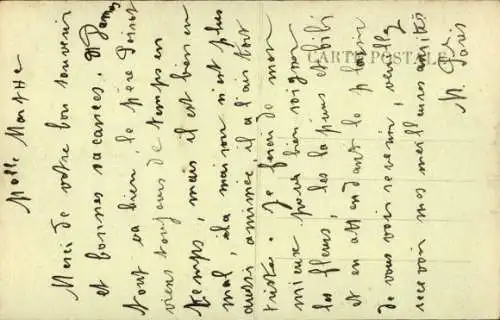 Melle Marthe
Merci de votre bon souvenir
et bonnes vacances. à
tout va bien, le père Poirot
viens toujours de temps en
temps, mais il est bien en
mal, la maison n'est plus
aussi animée, il a l'air tout
triste. Je ferai de mon
mieux pour bien soigner
les fleurs, les lapins et bibi
et en attendant le plaisir
de vous voir revenir, veuillez
recevoir mes meilleures amitiés
M.
Paris
CARTE POSTALE